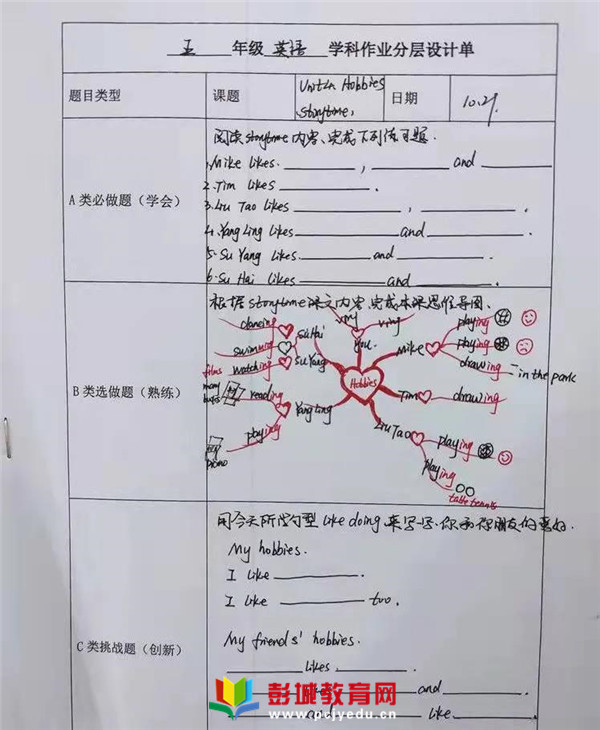 五 年级 英语 学科作业分层设计单
题目类型
课题
Unit4 Hobbies
Storytime.
日期
10.29.
A 类必做题（学会）
阅读storytime内容、完成下列练习题.
1.Mike likes ________, ________ and ________
2.Tim likes ________.
3.Liu Tao likes ________, ________.
4.Yang Ling likes ________ and ________.
5.Su Yang likes ________ and ________.
6.Su Hai likes ________ and ________.
B 类选做题（熟练）
根据storytime课文内容,完成本课思维导图.
Hobbies
Su Hai
dancing
swimming
Su Yang
watching
films
Yang Ling
reading
many
playing
piano
you
ying
Mike
playing
playing
drawing
in the park
Tim
drawing
Liu Tao
playing
playing
table tennis
C 类挑战题（创新）
用今天所学句型 like doing 来写一写,你和你朋友的喜好.
My hobbies.
I like ________.
I like ________ too.
My friends' hobbies.
________ likes ________.
________ likes ________ and ________.
________ and ________ like ________.
彭城教育网
www.pcjyedu.cn